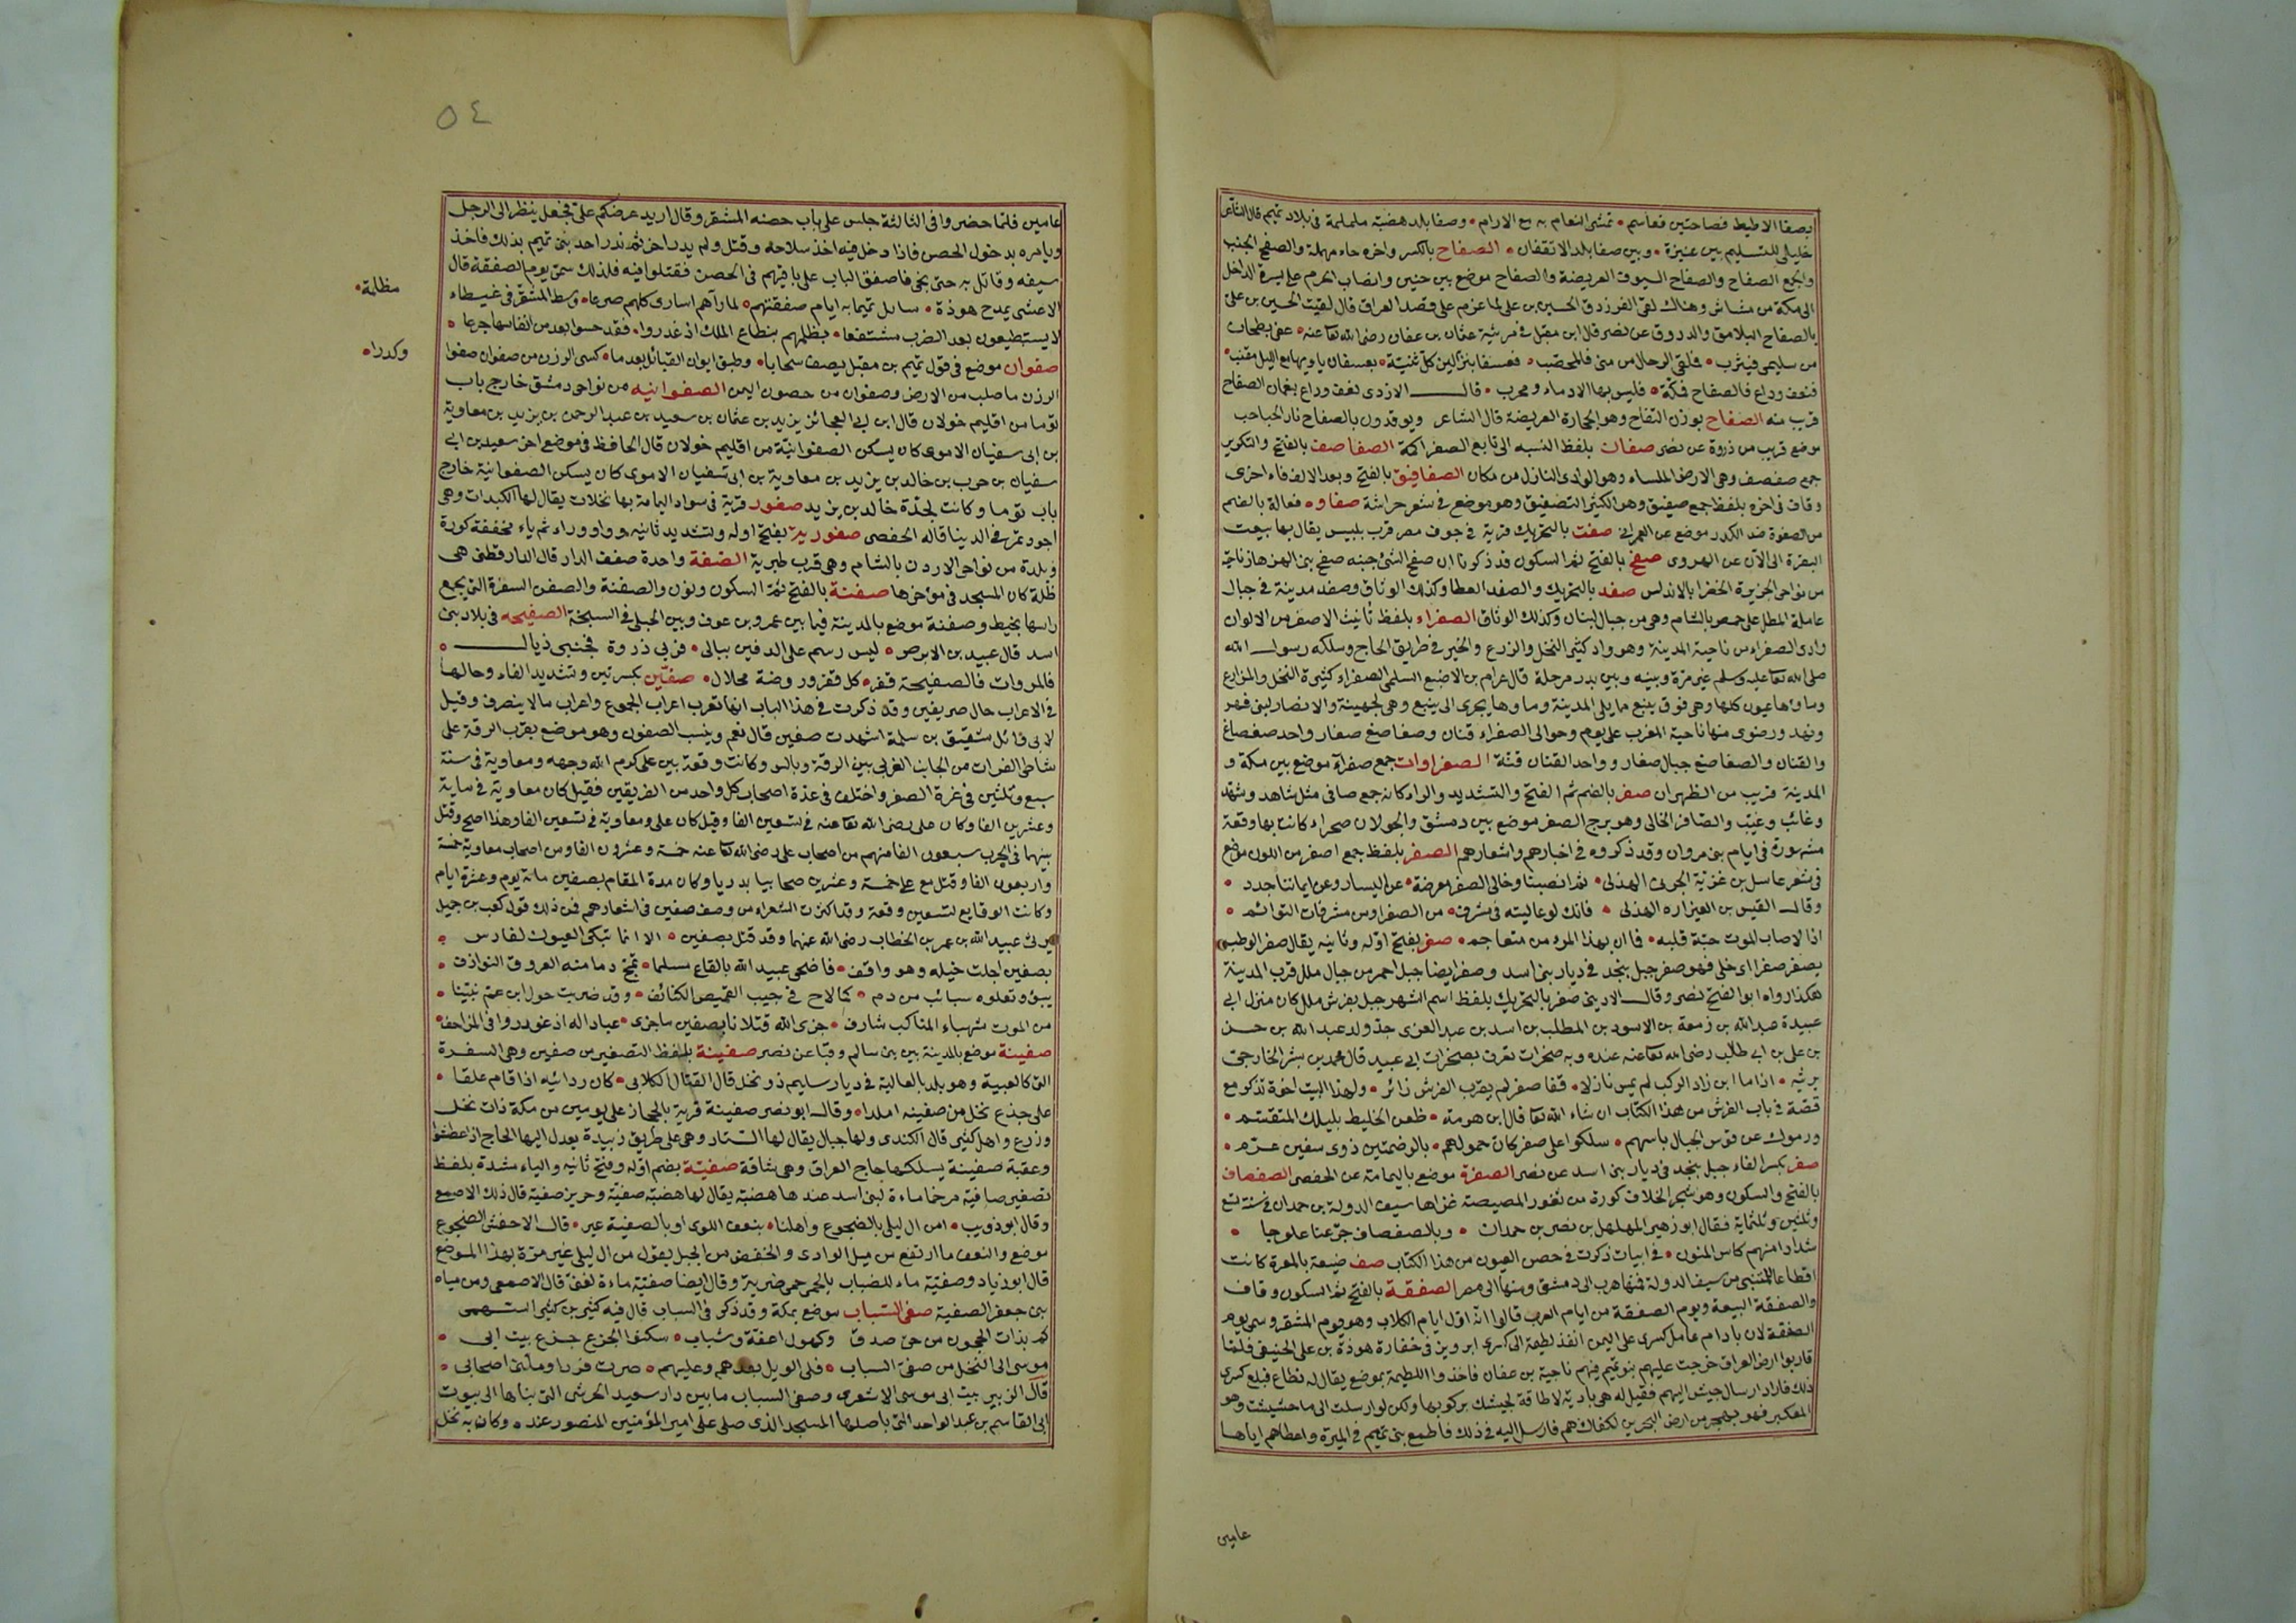 بصفا الاطيط فصاحتين فعاسم • تمشى النعام به مع الارام • وصفا بلد هضبة ململمة فى بلاد تميم قال الشاعر
خليلى للتسليم بين عنيزة • وبين صفا بلد الا تقفان • الصفاح بالكسر واخره حاء مهملة والصفح الجنب
والجمع الصفاح والصفاح السيوف العريضة والصفاح موضع بين حنين وانصاب الحرم على يسرة الداخل
الى مكة من مشاش وهناك لقى الفرزدق الحسين بن على لما عزم على قصد العراق قال لقيت الحسين بن على
بالصفاح اليلامق والدروق عن نصر قال ابن مقبل فى مرثية عثمان بن عفان رضى الله تعا عنه • عفى بطحان
من سليمى فيثرب • فملقى الرحال من منى فالمحصب • فعسفا بنزالين كل ثنية • بعسفان ياويها مع الليل مقنب •
فنعف وداع فالصفاح فمكة • فليس بها الا دماء ومحرب • قال الازدى نعف وداع بنعمان الصفاح
قريب منه الصفاح بوزن التفاح وهو الحجارة العريضة قال الشاعر ويوقدون بالصفاح نار الحباحب
موضع قريب من ذروة عن نصر صفان بلفظ النسبه الى تابع الصفر اكمة الصفاصف بالفتح والتكرير
جمع صفصف وهى الارض الملساء وهو الوادى النازل من مكان الصفافيق بالفتح وبعد الالف فاء اخرى
وقاف فى اخره بلفظ جمع صفيق وهو الكثير التصفيق وهو موضع فى شعر خراشة صفاوه فعالة بالضم
من الصفوة ضد الكدر موضع عن العمرانى صفت بالتحريك قرية فى جوف مصر قرب بلبيس يقال بها بيعت
البقرة الى الآن عن الهروى صفح بالفتح ثم السكون قد ذكرنا ان صفح الشئ جنبه صفح بنى الهزهاز ناحية
من نواحى الجزيرة الخضرا بالاندلس صفد بالتحريك والصفد العطا وكذلك الوثاق وصفد مدينة فى جبال
عاملة المطل على حمص بالشام وهى من جبال لبنان وكذلك الوثاق الصفراء بلفظ تانيث الاصفر من الالوان
وادى الصفراء من ناحية المدينة وهو واد كثير النخل والزرع والخير فى طريق الحاج وسلكه رسول الله
صلى الله تعا عليه وسلم غير مرة وبينه وبين بدر مرحلة قال عرام بن الاصبغ السلمى الصفراء كثيرة النخل والمزارع
وماؤها عيون كلها وهى فوق ينبع مما يلى المدينة وماؤها يجرى الى ينبع وهى لجهينة والانصار لبنى فهر
ونهد ورضوى منها ناحية المغرب على يوم وحوالى الصفراء قنان وصفاصغ صغار واحد صفصاغ
والقنان والصفاصغ جبال صغار وواحد القنان قنة الصفراوات جمع صفراء موضع بين مكة و
المدينة قريب من الظهران صفر بالضم ثم الفتح والتشديد والراء كانه جمع صافر مثل شاهد وشهد
وغائب وغيب والصافر الخالى وهو برج الصفر موضع بين دمشق والجولان صحراء كانت بها وقعة
مشهورة فى ايام بنى مروان وقد ذكروه فى اخبارهم واشعارهم الصفر بلفظ جمع اصفر من اللون موضع
فى شعر غاسل بن غزية الجربى الهذلى • ثم انصبنا وخالى الصفر معرضة • عن اليسار وعن ايماننا جدد •
وقال القيس بن العيزاره الهذلى • فانك لو عاليته فى مشرف • من الصفر او من مشرفات التوائم •
اذا لاصاب الموت حبة قلبه • فما ان بهذا المرء من متعاجم • صفر بفتح اوله وثانيه يقال صفر الوطب
يصفر صفرا اى خلى فهو صفر جبل بنجد فى ديار بنى اسد وصفر ايضا جبل احمر من جبال ملل قرب المدينة
هكذا رواه ابو الفتح نصر وقال الاديبى صفر بالتحريك بلفظ اسم الشهر جبل بفرش ملل كان منزل ابى
عبيدة عبد الله بن زمعة بن الاسود بن المطلب بن اسد بن عبد العزى جد ولد عبد الله بن حسن
بن على بن ابى طالب رضى الله تعا عنه عنده وبه صخرات تعرف بصخرات ابى عبيد قال محمد بن بشر الخارجى
يرثيه • اذا ما ابن زاد الركب لم يمس نازلا • قفا صفر لم يقرب الفرش زائر • ولهذا البيت اخوة تذكر مع
قصة فى باب الفرش من هذا الكتاب ان شاء الله تعا قال ابن هرمة • ظعن الخليط بليلك المتقسم •
ورموك عن قوس الجبال باسهم • سلكوا على صفر كان حمولهم • بالرضمتين ذوى سفين عوم •
صفر بكسر الفاء جبل بنجد فى ديار بنى اسد عن نصر الصفرة موضع باليمامة عن الحفصى الصفصاف
بالفتح والسكون وهو شجر الخلاف كورة من ثغور المصيصة غزاها سيف الدولة بن حمدان فى سنة تسع
وثلثين وثلثماية فقال ابو زهير المهلهل بن نصر بن حمدان • وبالصفصاف جرعنا علوجا •
شدادا منهم كاس المنون • فى ابيات ذكرت فى حصن العيون من هذا الكتاب صف ضيعة بالمعرة كانت
اقطاعا للمتنبى من سيف الدولة فمنها هرب الى دمشق ومنها الى مصر الصفقة بالفتح ثم السكون وقاف
والصفقة البيعة ويوم الصفقة من ايام العرب قالوا انه اول ايام الكلاب وهو يوم المشقر وسمى يوم
الصفقة لان باذام عامل كسرى على اليمن انفذ لطيمة الى كسرى ابرويز فى خفارة هوذة بن على الحنيفى فلما
قاربوا ارض العراق خرجت عليهم بنو تميم فيهم ناجية بن عفان فاخذوا اللطيمة بموضع يقال له نطاع فبلغ كسرى
ذلك فاراد ارسال جيش اليهم فقيل له هى بادية لا طاقة لجيشك بركوبها ولكن لو ارسلت الى ماحشيشت وهو
المعكبر فهو بهجر من ارض البحرين لكفاك هم فارسل اليه فى ذلك فاطمع بنى تميم فى الميرة واعطاهم اياها
عامين
٥٤
عامين فلما حضروا فى الثالثة جلس على باب حصنه المشقر وقال اريد عرضكم على فجعل ينظر الى الرجل
ويامره بدخول الحصن فاذا دخل فيه اخذ سلاحه وقتل ولم يدر اخر ثم نذر احد بنى تميم بذلك فاخذ
سيفه وقاتل به حتى نجى فاصفق الباب على باقيهم فى الحصن فقتلوا فيه فلذلك سمى يوم الصفقة قال
الاعشى يمدح هوذة • سائل تميما به ايام صفقتهم • لما رآهم اسارى كلهم ضرعا • وسط المشقر فى غيطاء
مظلمة •
لا يستطيعون بعد الضرب منتفعا • بظلمهم بنطاع الملك اذ غدروا • فقد حسوا بعد من انفاسها جرعا •
صفوان موضع فى قول تميم بن مقبل يصف سحابا • وطبق ايوان القبائل بعد ما • كسى الرزن من صفوان صفوا
وكدرا •
الرزن ما صلب من الارض وصفوان من حصون اليمن الصفوانيه من نواحى دمشق خارج باب
توما من اقليم خولان قال ابن ابى العجائز يزيد بن عثمان بن سعيد بن عبد الرحمن بن يزيد بن معاوية
بن ابى سفيان الاموى كان يسكن الصفوانية من اقليم خولان قال الحافظ فى موضع اخر سعيد بن ابى
سفيان بن حرب بن خالد بن يزيد بن معاوية بن ابى سفيان الاموى كان يسكن الصفوانية خارج
باب توما وكانت لجدة خالد بن يزيد صفور قرية فى سواد اليمامة بها نخلات يقال لها الكبدات وهى
اجود تمر فى الدنيا قاله الحفصى صفورية بفتح اوله وتشديد ثانيه وواو وراء ثم ياء مخففة كورة
وبلدة من نواحى الاردن بالشام وهى قرب طبرية الصفة واحدة صفف الدار قال الدارقطنى هى
ظلة كان المسجد فى مؤخرها صفنة بالفتح ثم السكون ونون والصفنة والصفن السفرة التى يجمع
راسها بخيط وصفنة موضع بالمدينة فيما بين عمرو بن عوف وبين الحبلى فى السبخة الصفيحه فى بلاد بنى
اسد قال عبيد بن الابرص • ليس رسم على الدفين ببالى • فربى ذروة فجنبى ذيال •
فالمروات فالصفيحة قفر • كل قفر وروضة محلال • صفين بكسرتين وتشديد الفاء وحالها
فى الاعراب حال صريفين وقد ذكرت فى هذا الباب انها تعرب اعراب الجموع واعراب ما لا ينصرف وقيل
لابى وائل شقيق بن سلمة اشهدت صفين قال نعم وبئس الصفون وهو موضع بقرب الرقة على
شاطى الفرات من الجانب الغربى بين الرقة وبالس وكانت وقعة بين على كرم الله وجهه ومعاوية فى سنة
سبع وثلثين فى غرة الصفر واختلف فى عدة اصحاب كل واحد من الفريقين فقيل كان معاوية فى ماية
وعشرين الفا وكان على رضى الله تعا عنه فى تسعين الفا وقيل كان على ومعاوية فى تسعين الفا وهذا اصح وقتل
بينهما فى الحرب سبعون الفا منهم من اصحاب على رضى الله تعا عنه خمسة وعشرون الفا ومن اصحاب معاوية خمسة
واربعون الفا وقتل مع على خمسة وعشرين صحابيا بدريا وكان مدة المقام بصفين مائة يوم وعشرة ايام
وكانت الوقايع تسعين وقعة وقد اكثرت الشعراء من وصف صفين فى اشعارهم فمن ذلك قول كعب بن جعيل
يرثى عبيد الله بن عمر بن الخطاب رضى الله عنهما وقد قتل بصفين • الا انما تبكى العيون لفارس •
بصفين اجلت خيله وهو واقف • فاضحى عبيد الله بالقاع مسلما • تمج دما منه العروق النوازف •
يبوء وتعلوه سبائب من دم • كما لاح فى جيب القميص الكفائف • وقد ضربت حول ابن عم نبينا •
من الموت شهباء المناكب شارف • جزى الله قتلانا بصفين ما جزى • عباد اله اذ غودروا فى المزاحف •
صفينة موضع بالمدينة بين بنى سالم وقبا عن نصر صفينة بلفظ التصغير من صفن وهى السفرة
التى كالعيبة وهو بلد بالعالية فى ديار سليم ذو نخل قال القتال الكلابى • كان ردائيه اذا قام علقا •
على جذع نخل من صفينه املدا • وقال ابو نصر صفينة قرية بالحجاز على يومين من مكة ذات نخل
وزرع واهل كثير قال الكندى ولها جبال يقال لها الستار وهى على طريق زبيدة يعدل اليها الحاج اذا عطشوا
وعقبة صفينة يسلكها حاج العراق وهى شاقة صفية بضم اوله وفتح ثانيه والياء مشدة بلفظ
تصغير صافية مرخما ماءة لبنى اسد عندها هضبة يقال لها هضبة صفية وحريز صفية قال ذلك الاصمع
وقال ابو ذويب • امن ال ليلى بالضجوع واهلنا • بنعف اللوى او بالصفية عير • قال الاخفش الضجوع
موضع والنعف ما ارتفع من مسيل الوادى وانخفض من الجبل يقول من ال ليلى غير مرة بهذا الموضع
قال ابو زياد وصفية ماء للضباب بالحمى حمى ضرية وقال ايضا صفية ماءة لغنى قال الاصمعى ومن مياه
بنى جعفر الصفية صفى السباب موضع بمكة وقد ذكر فى السباب قال فيه كثير بن كثير السهمى
كم بذات الحجون من حى صدق وكهول اعفة وشباب • سكنوا الجزع جزع بيت ابى •
موسى الى النخل من صفى السباب • فلى الويل بعدهم وعليهم • صرت فردا وملنى اصحابى •
قال الزبير بيت ابى موسى الاشعرى وصفى السباب ما بين دار سعيد الحرشى التى بناها الى بيوت
ابى القاسم بن عبد الواحد التى باصلها المسجد الذى صلى على امير المؤمنين المنصور عنده وكان به نخل